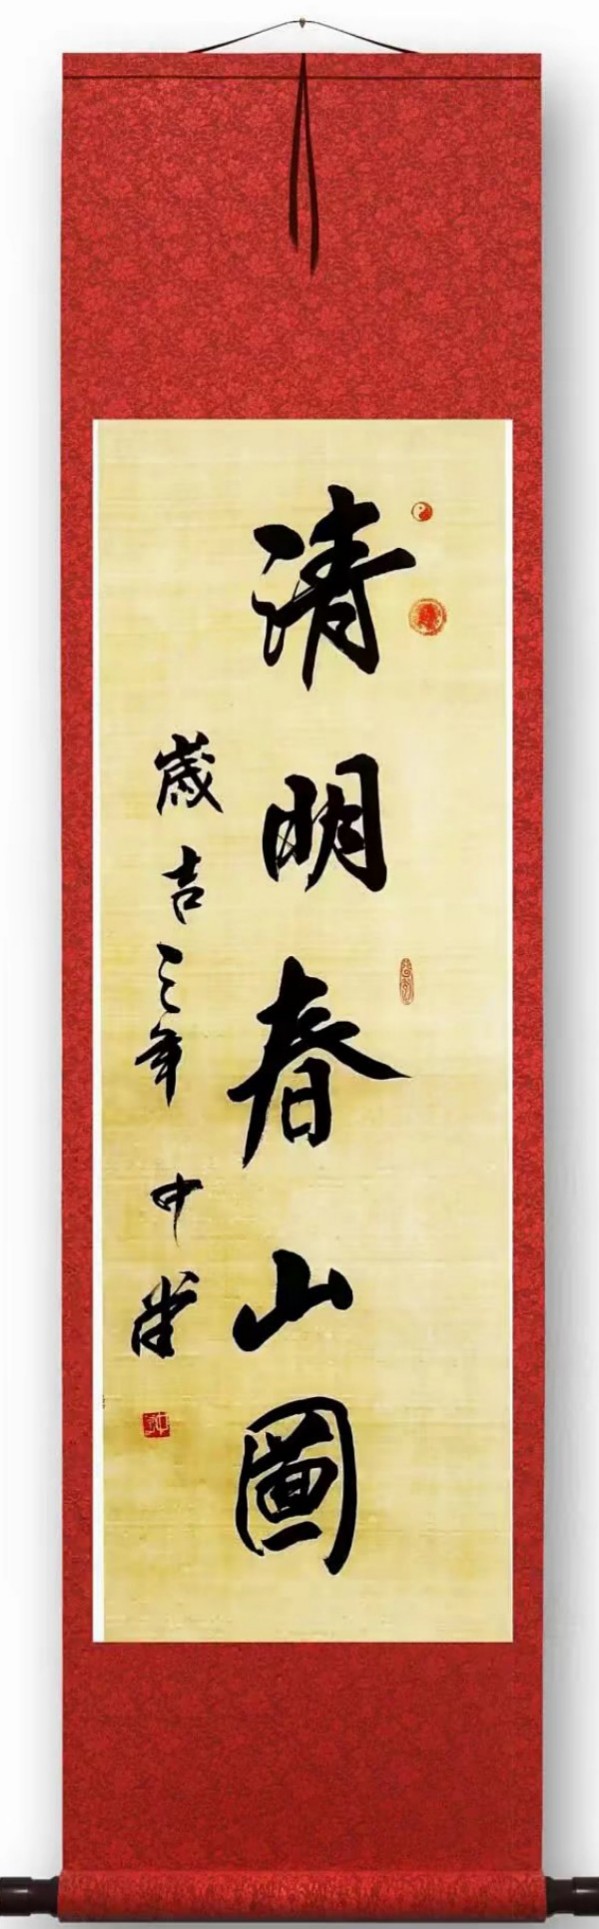 清明春山圖
歲吉三年 中堂